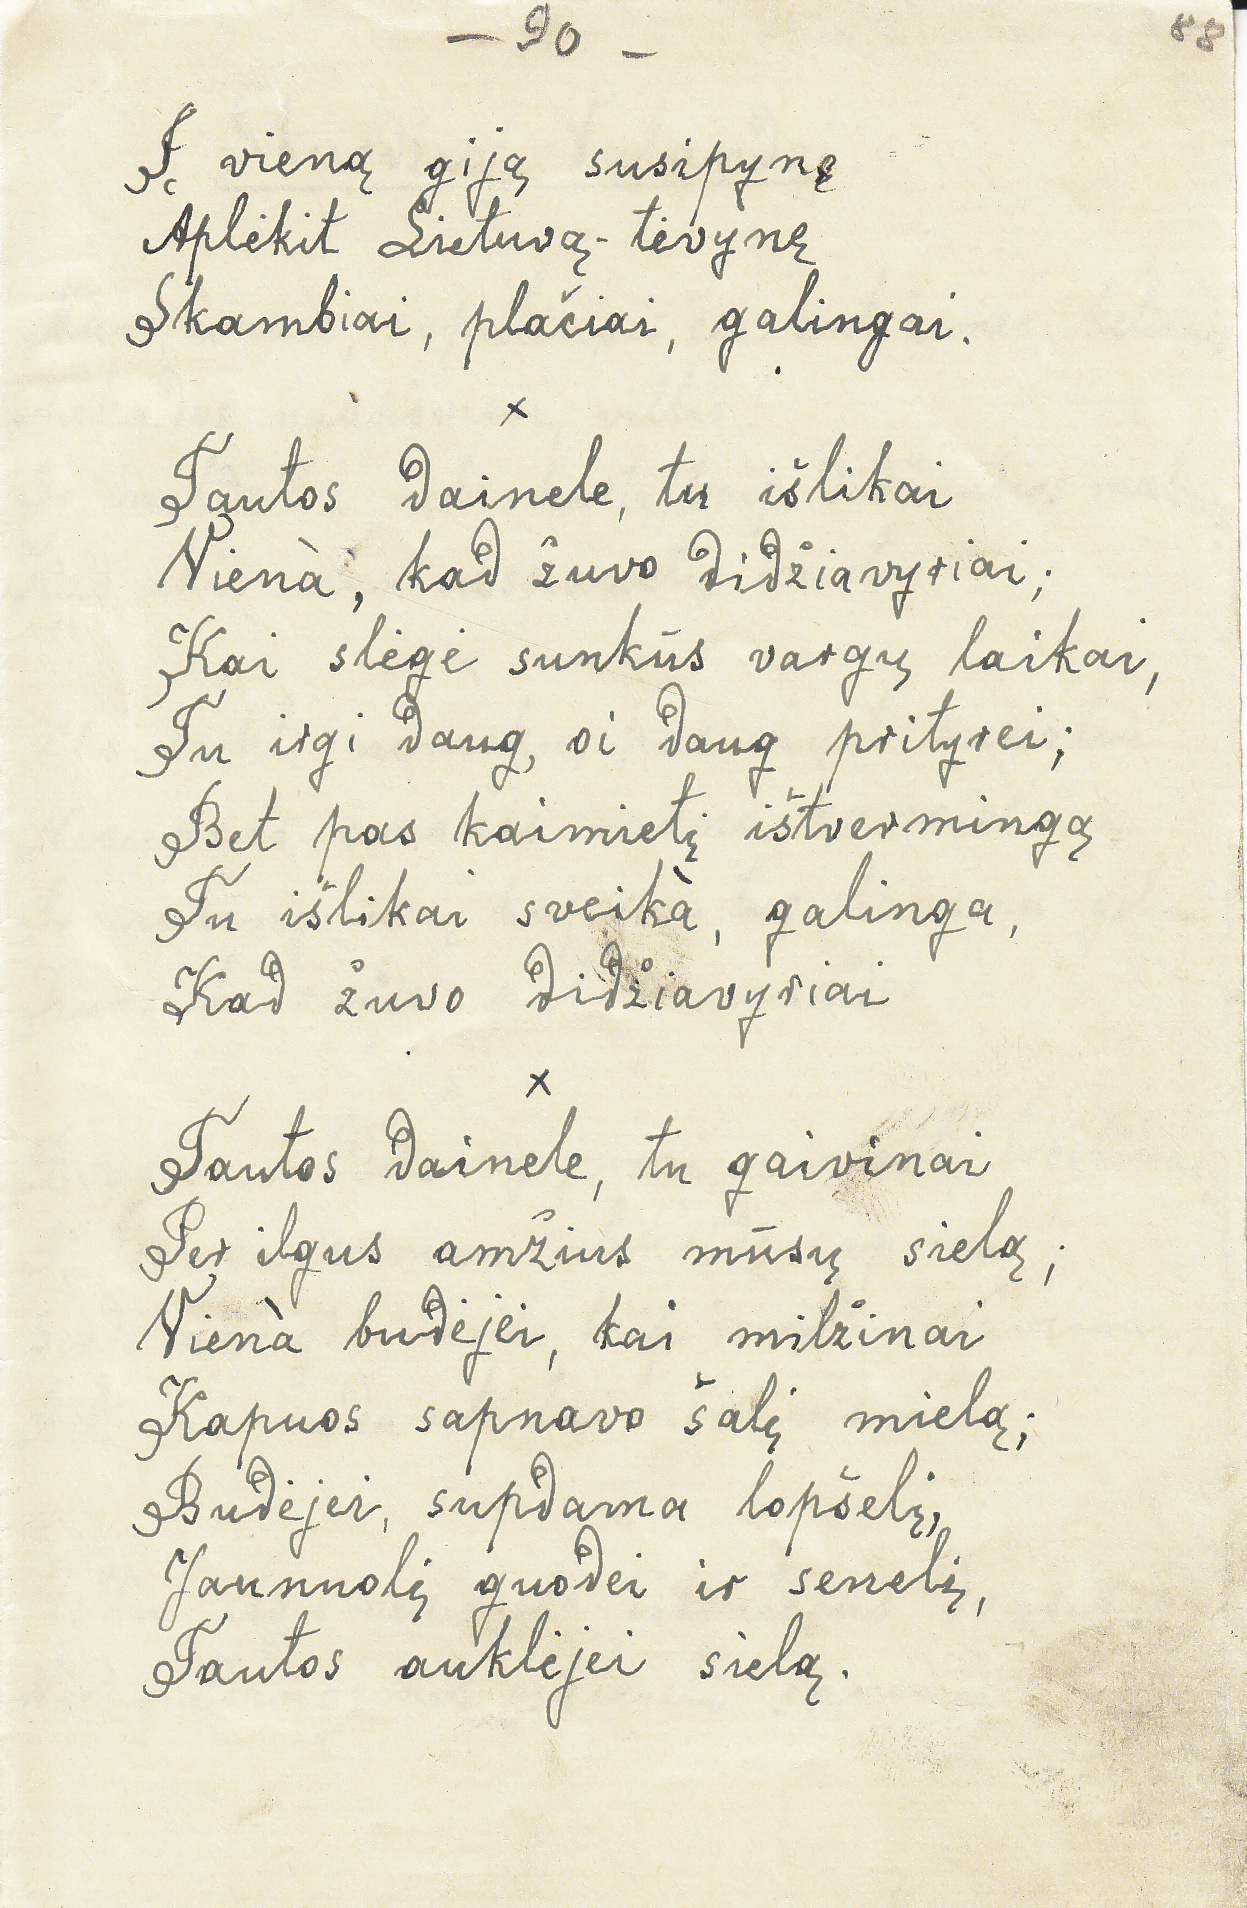 – 90 –
88
Į vieną giją susipynę
Aplėkit Lietuvą-tėvynę
Skambiai, plačiai, galingai.
x
Tautos dainele, tu išlikai
Vienà, kad žuvo didžiavyriai;
Kai slėgė sunkūs vargų laikai,
Tu irgi daug, oi daug prityrei;
Bet pas kaimietį ištvermingą
Tu išlikai sveikà, galinga,
Kad žuvo didžiavyriai
x
Tautos dainele, tu gaivinai
Per ilgus amžius mūsų sielą;
Vienà budėjei, kai milžinai
Kapuos sapnavo šalį mielą;
Budėjei, supdama lopšelį,
Jaunuolį guodei ir senelį,
Tautos auklėjei sielą.